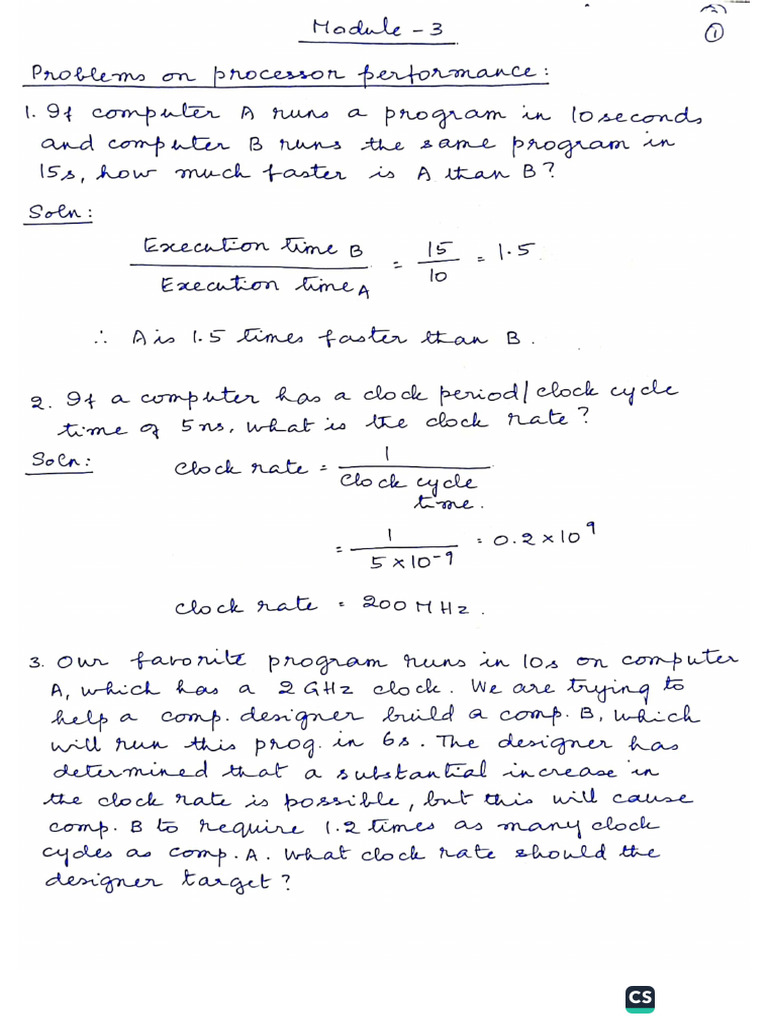 Module - 3
1
Problems on processor performance:
1. If computer A runs a program in 10 seconds
and computer B runs the same program in
15s, how much faster is A than B?
Soln:
Execution time B / Execution time A = 15/10 = 1.5
∴ A is 1.5 times faster than B.
2. If a computer has a clock period/clock cycle
time of 5 ns, what is the clock rate?
Soln: clock rate = 1 / clock cycle time.
= 1 / 5 × 10⁻⁹ = 0.2 × 10⁹
clock rate = 200 MHz.
3. Our favorite program runs in 10s on computer
A, which has a 2 GHz clock. We are trying to
help a comp. designer build a comp. B, which
will run this prog. in 6s. The designer has
determined that a substantial increase in
the clock rate is possible, but this will cause
comp. B to require 1.2 times as many clock
cycles as comp. A. What clock rate should the
designer target?
CS